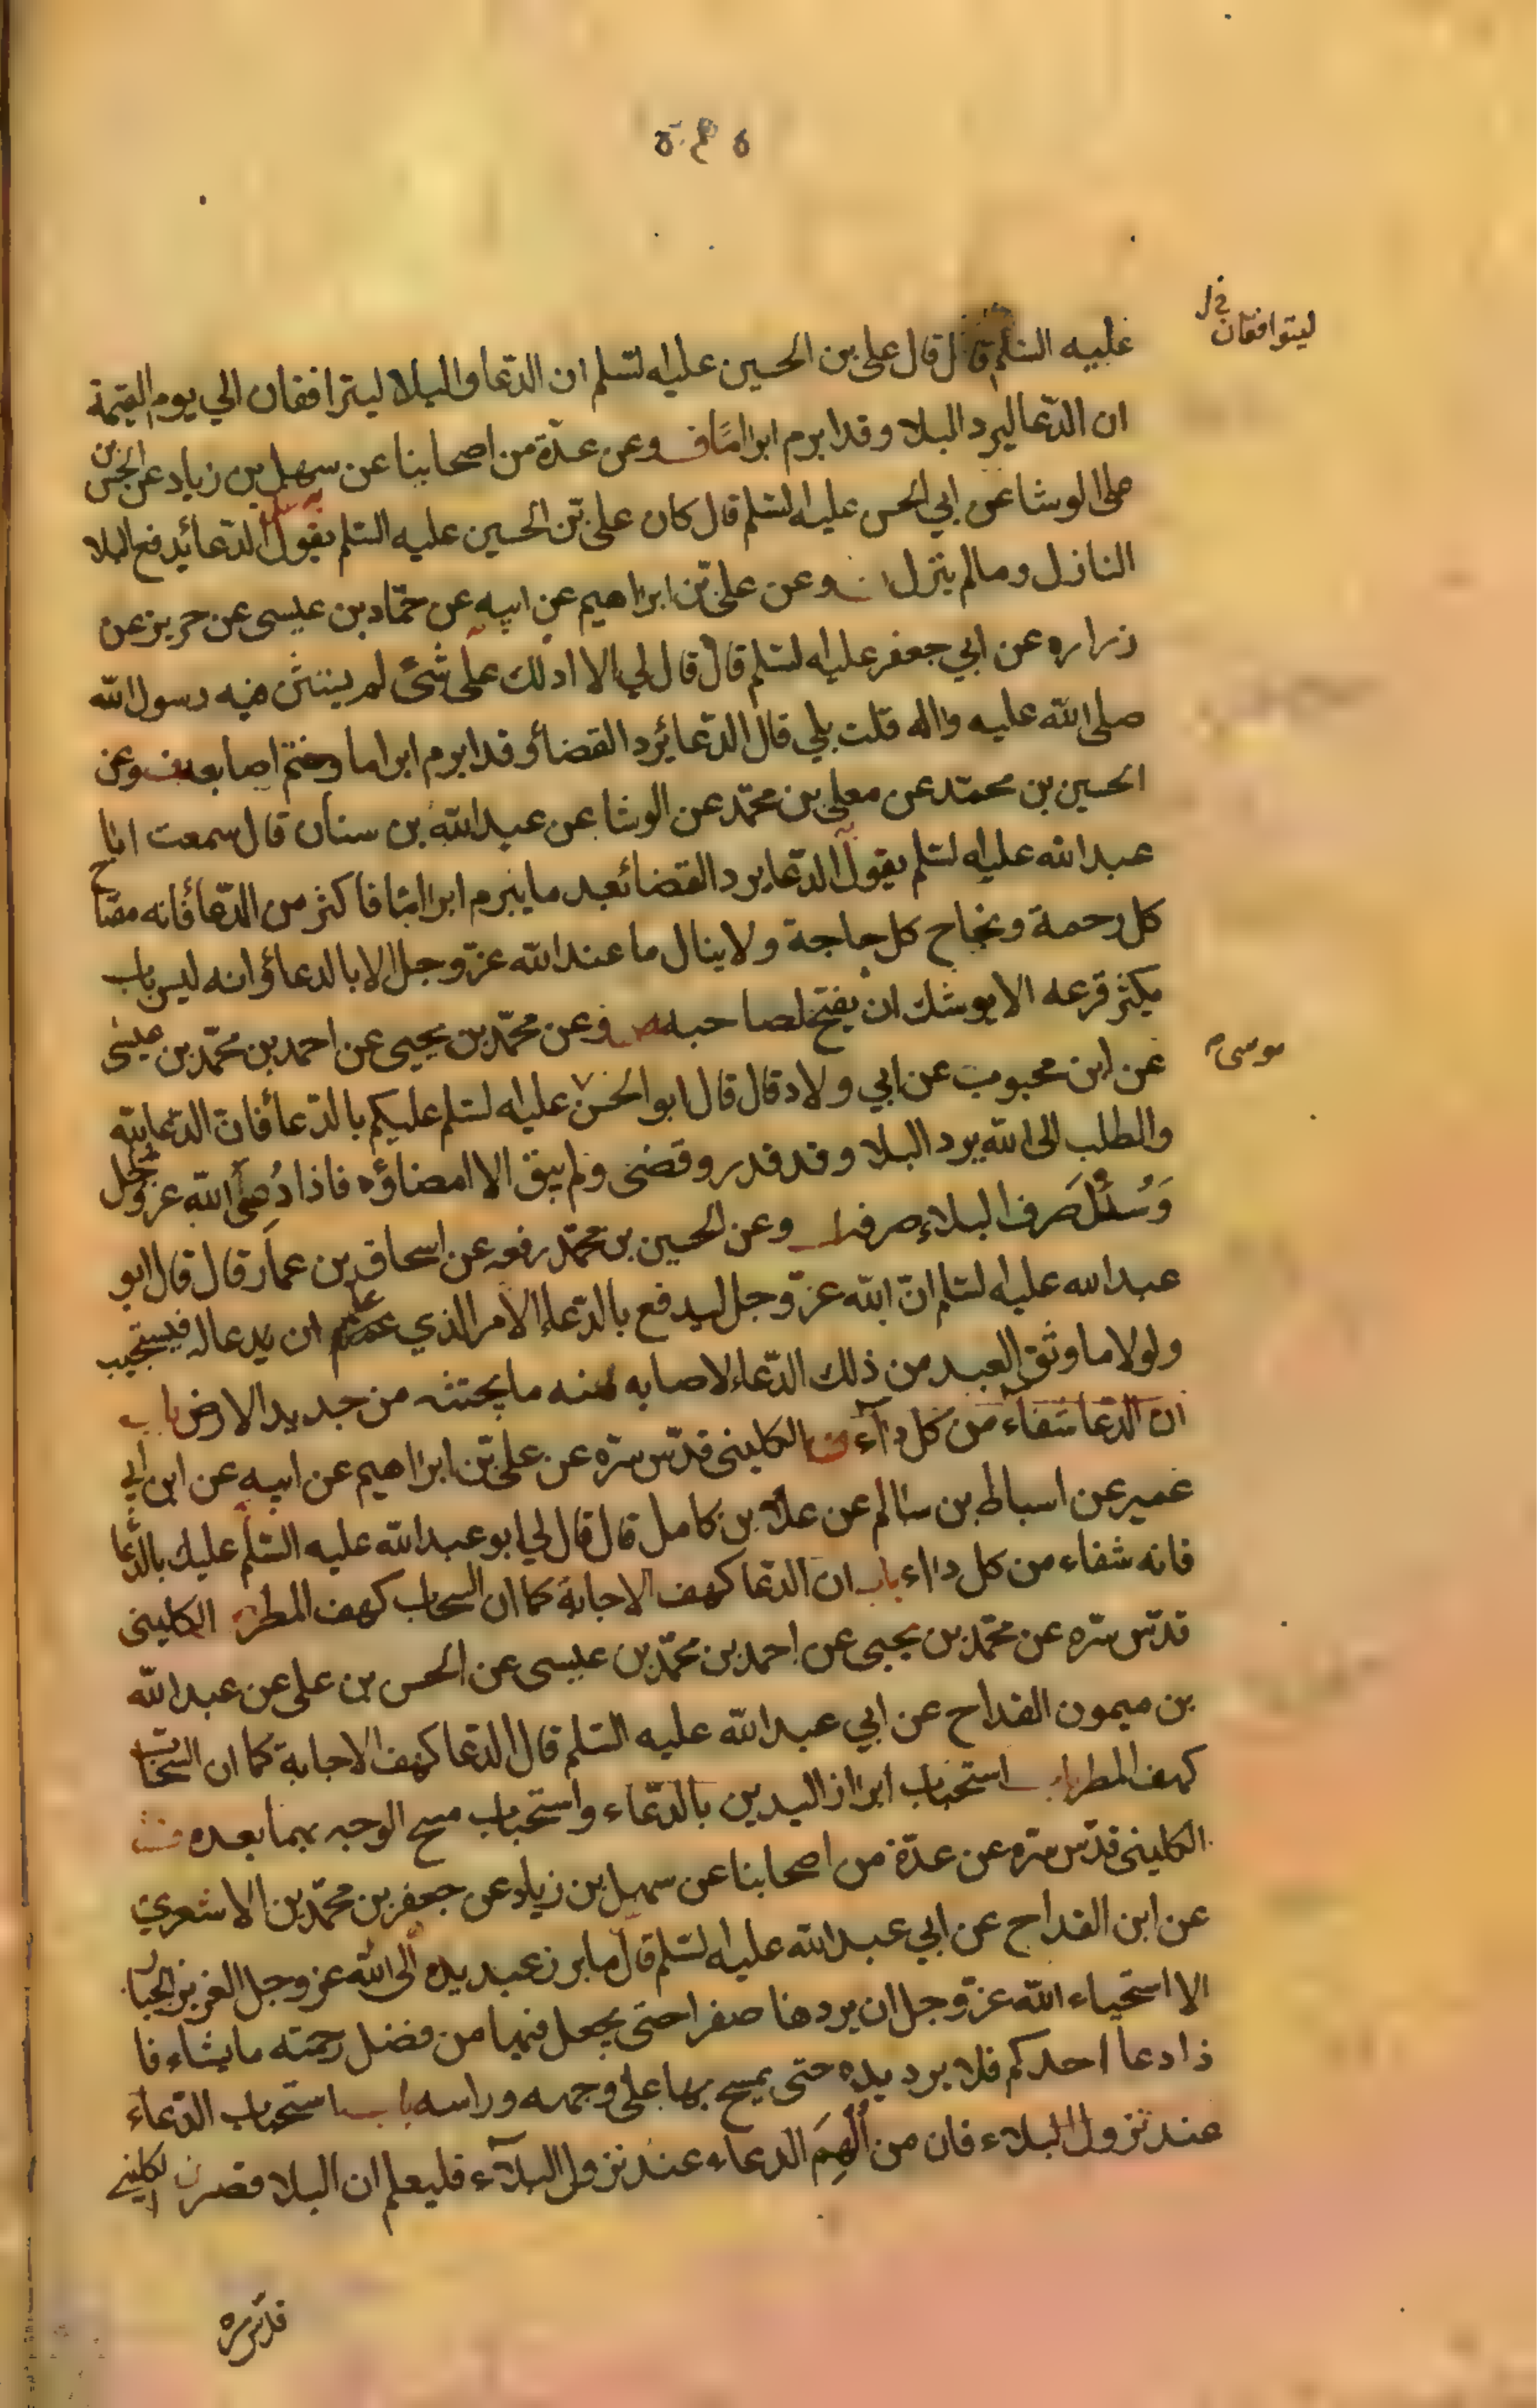 ليتوافقان خ ل
عليه السلم قال قال علي بن الحسين عليه لسلم ان الدعا والبلا ليترافقان الي يوم القيمة
ان الدعا ليرد البلا وقد ابرم ابراما وعن عدة من اصحابنا عن سهل بن زياد عن الحسن بن
علي الوشا عن ابي الحسن عليه لسلم قال كان علي بن الحسين عليه السلم يقول الدعا يدفع البلا
النازل ومالم ينزل وعن علي بن ابراهيم عن ابيه عن حماد بن عيسى عن حريز عن
زراره عن ابي جعفر عليه لسلم قال قال لي الا ادلك على شئ لم يستثن فيه رسول الله
صلى الله عليه واله قلت بلي قال الدعا يرد القضا وقد ابرم ابراما وضم اصابعه وعن
الحسين بن محمد عن معلى بن محمد عن الوشا عن عبد الله بن سنان قال سمعت ابا
عبد الله عليه لسلم يقول الدعا يرد القضا بعد ما يبرم ابراما فاكثر من الدعا فانه مفتاح
كل رحمة ونجاح كل حاجة ولا ينال ما عند الله عز وجل الا بالدعا وانه ليس باب
يكثر قرعه الا يوشك ان يفتح لصاحبه وعن محمد بن يحيى عن احمد بن محمد بن عيسى
موسى
عن ابن محبوب عن ابي ولاد قال قال ابو الحسن عليه لسلم عليكم بالدعا فان الدعا لله
والطلب الى الله يرد البلا وقد قدر وقضى ولم يبق الا امضاؤه فاذا دعي الله عز وجل
وسئل صرف البلاء صرفه وعن الحسين بن محمد رفعه عن اسحاق بن عمار قال قال ابو
عبد الله عليه لسلم ان الله عز وجل ليدفع بالدعاء الامر الذي علم ان يدعا له فيستجيب
ولولا ما وثق العبد من ذلك الدعاء لاصابه منه ما يجتثه من جديد الارض باب
ان الدعا شفاء من كل داء الكليني قدس سره عن علي بن ابراهيم عن ابيه عن ابن ابي
عمير عن اسباط بن سالم عن علا بن كامل قال قال لي ابو عبد الله عليه السلم عليك بالدعا
فانه شفاء من كل داء باب ان الدعا كهف الاجابة كما ان السحاب كهف المطر الكليني
قدس سره عن محمد بن يحيى عن احمد بن محمد بن عيسى عن الحسن بن علي عن عبد الله
بن ميمون القداح عن ابي عبد الله عليه السلم قال الدعا كهف الاجابة كما ان السحاب
كهف المطر باب استحباب ابراز اليدين بالدعاء واستحباب مسح الوجه بهما بعده
الكليني قدس سره عن عدة من اصحابنا عن سهل بن زياد عن جعفر بن محمد بن الاشعري
عن ابن القداح عن ابي عبد الله عليه لسلم قال ما برز عبد يده الى الله عز وجل العزيز الجبار
الا استحياء الله عز وجل ان يردها صفرا حتى يجعل فيها من فضل رحمته ما يشاء فا
ذا دعا احدكم فلا يرد يده حتى يمسح بها على وجهه وراسه باب استحباب الدعاء
عند نزول البلاء فان من الهم الدعاء عند نزول البلاء فليعلم ان البلا قصير الكليني
قدس سره